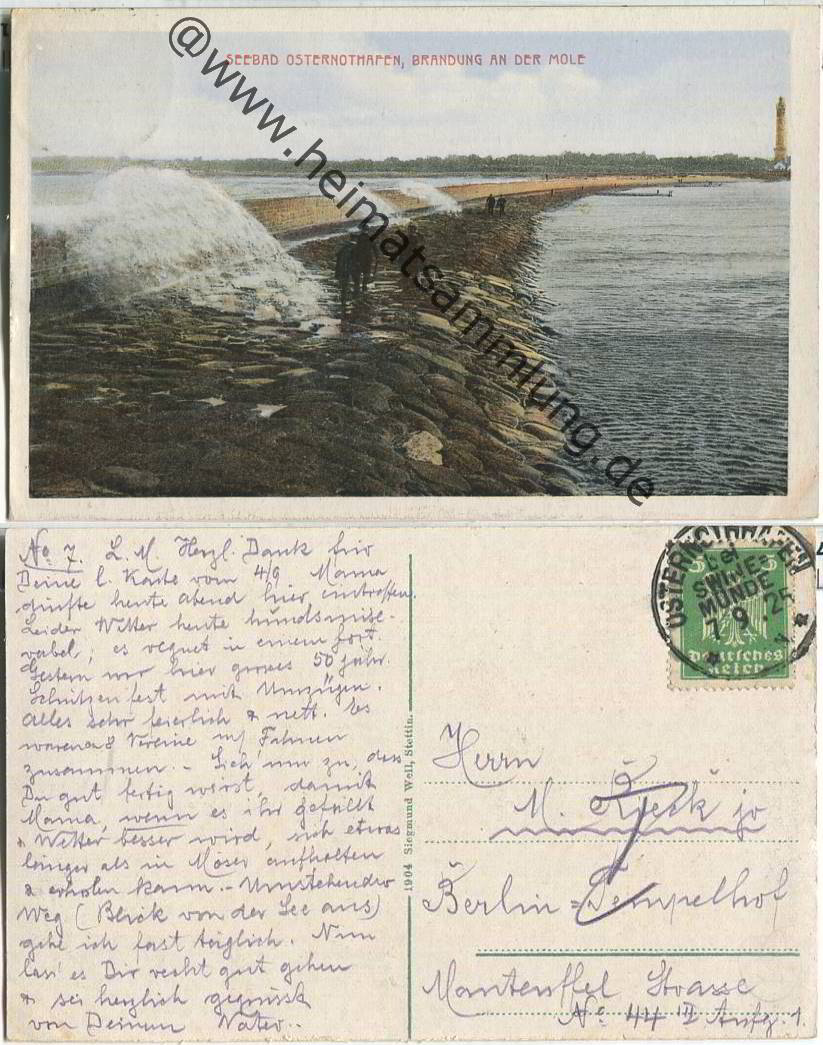 SEEBAD OSTERNOTHAFEN, BRANDUNG AN DER MOLE
@www.heimatsammlung.de
No 7. L. M. Herzl. Dank für
Deine l. Karte vom 4/9 Mama
dürfte heute Abend hier eintreffen.
Leider Wetter heute hundsmise-
rabel; es regnet in einem fort.
Gestern war hier grosses 50 jähr.
Schützenfest mit Umzügen.
Alles sehr feierlich & nett. Es
waren 8 Vereine m/ Fahnen
zusammen. - Sieh' nur zu, dass
Du gut fertig wirst, damit
Mama, wenn es ihr gefällt
& Wetter besser wird, sich etwas
länger als in Moser aufhalten
& erholen kann. - Umstehenden
Weg (Blick von der See aus)
gehe ich fast täglich. Nun
lass' es Dir recht gut gehen
& sei herzlich gegrüsst
von Deinem Vater..
1904 Siegmund Weil, Stettin.
OSTERNOTHHAFEN
bei
SWINE-
MÜNDE
7.9.25
5 5
Deutsches
Reich
Herrn
M. jr
Berlin=Tempelhof
Manteuffel Strasse
No 44 II Aufg. 1.